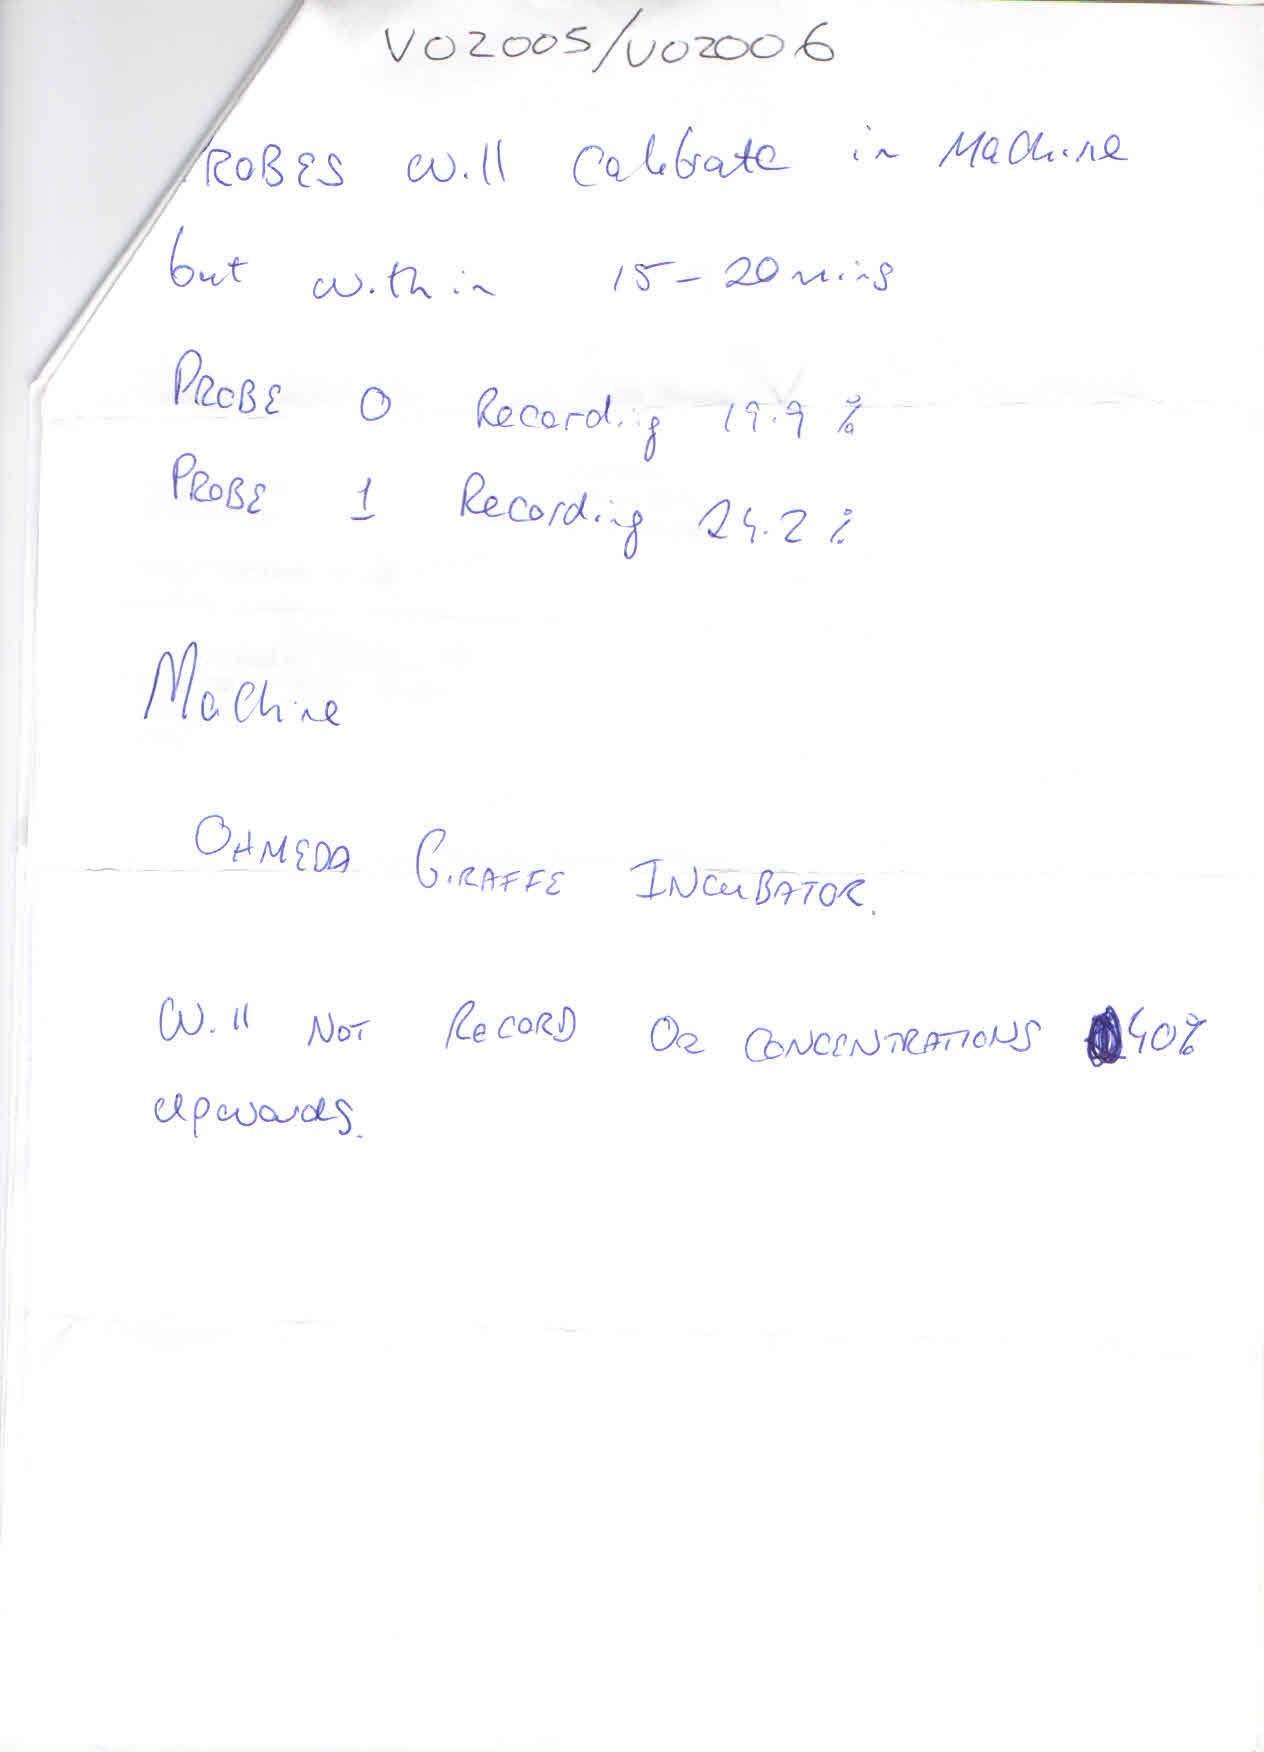 VO2005/VO2006
ROBES Will Calibrate in Machine
but within 15-20mins
PROBE 0 Recording 19.9 %
PROBE 1 Recording 24.2 %
Machine
OHMEDA GIRAFFE INCUBATOR.
Will NOT RECORD O2 CONCENTRATIONS 40%
upwards.